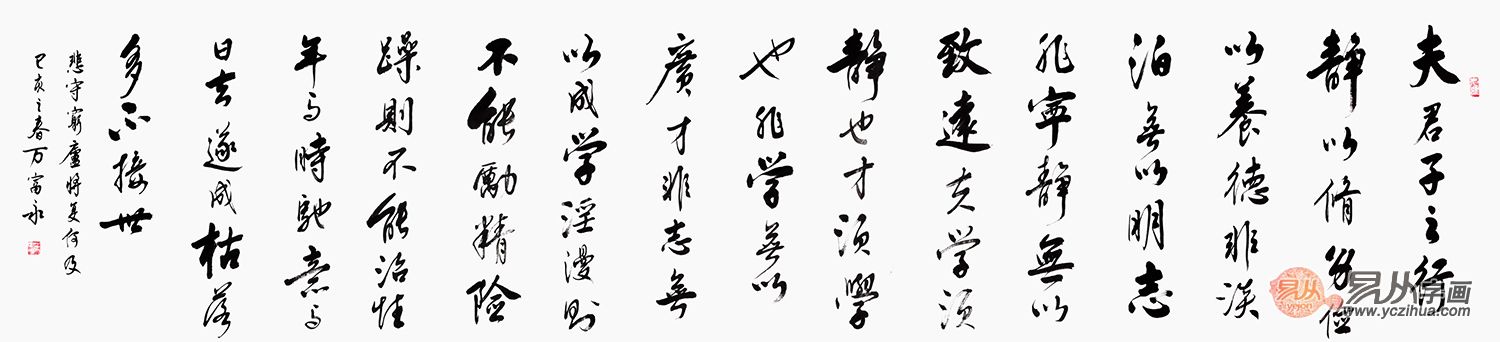 夫君子之行
静以脩身俭
以養德非淡
泊无以明志
非寧静無以
致遠夫学须
静也才须學
也非学无以
廣才非志无
以成学淫漫則
不能勵精险
躁則不能治性
年与時馳意与
日去遂成枯落
多不接世
悲守窮廬將复何及
己亥之春万富永
易从
易从字画
www.yczihua.com